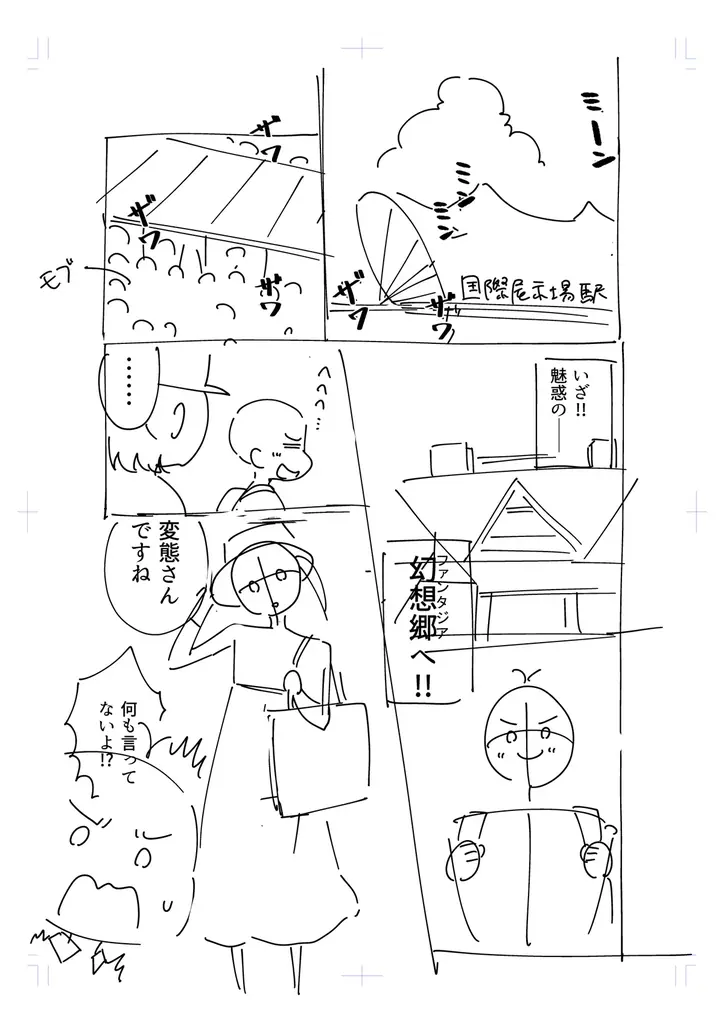 ミーン
ミン
ミン
国際展示場駅
ザワ
ザワ
ザワ
ザワ
ザワ
モブ
いざ!!
魅惑の―
幻想郷へ!!
ファンタジア
へへへ…
……
変態さん
ですね
何も言って
ないよ!?